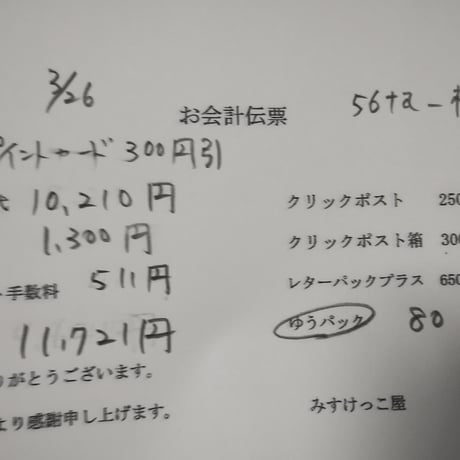 3/26
お会計伝票
イントカード 300円引
10,210円
1,300円
手数料 511円
11,721円
がとうございます。
より感謝申し上げます。
クリックポスト 250
クリックポスト箱 300
レターパックプラス 650
ゆうパック 80
みすけっこ屋